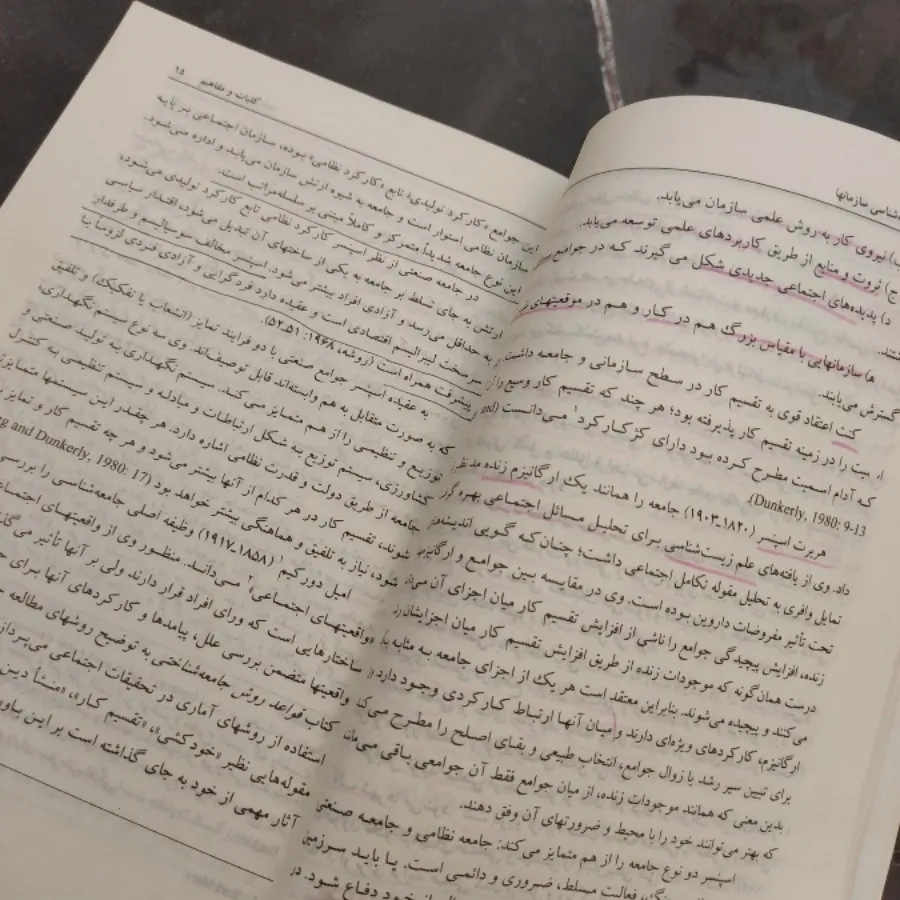 شناسی سازمانها
ب) نیروی کار به روش علمی سازمان می‌یابد.
ج) ثروت و منابع از طریق کاربردهای علمی توسعه می‌یابد.
د) پدیده‌های اجتماعی جدیدی شکل می گیرند که در جوامع
ه) سازمانهایی با مقیاس بزرگ هم در کار و هم در موقعیتهای
گسترش می‌یابند.
کنت اعتقاد قوی به تقسیم کار در سطح سازمانی و جامعه داشت.
بیت را در زمینه تقسیم کار پذیرفته بود؛ هر چند که تقسیم کار وسیع را
که آدام اسمیت مطرح کرده بود دارای کژکارکرد۱ می‌دانست (and
Dunkerly, 1980: 9-13).
هربرت اسپنسر (۱۸۲۰-۱۹۰۳) جامعه را همانند یک ارگانیزم زنده مد نظر
داد. وی از یافته‌های علم زیست‌شناسی برای تحلیل مسائل اجتماعی بهره
تمایل وافری به تحلیل مقوله تکامل اجتماعی داشت؛ چنان‌که گویی
تحت تأثیر مفروضات داروین بوده است. وی در مقایسه بین جوامع و
زنده، افزایش پیچیدگی جوامع را ناشی از افزایش تقسیم کار میان اجزای آن
درست همان‌گونه که موجودات زنده از طریق افزایش تقسیم کار میان اجزایشان
می‌کنند و پیچیده می‌شوند. بنابراین معتقد است هر یک از اجزای جامعه به مثابه
ارگانیزم، کارکردهای ویژه‌ای دارند و میان آنها ارتباط کارکردی وجود دارد.
برای تبیین سیر رشد یا زوال جوامع، انتخاب طبیعی و بقای اصلح را مطرح
بدین معنی که همانند موجودات زنده، از میان جوامع فقط آن جوامعی باقی
که بهتر می‌توانند خود را با محیط و ضرورتهای آن وفق دهند.
اسپنسر دو نوع جامعه را از هم متمایز می‌کند: جامعه نظامی و جامعه صنعتی
فعالیت مسلط، ضروری و دائمی است. یا باید سرزمین
از خود دفاع شود. در
کلیات و مفاهیم ۱۵
این جوامع «کارکرد تولیدی» تابع «کارکرد نظامی» بوده، سازمان اجتماعی بر پایه
سازمان نظامی استوار است و جامعه به شیوه ارتش سازمان می‌یابد و اداره می‌شود.
این نوع جامعه شدیداً متمرکز و کاملاً مبتنی بر سلسله‌مراتب است.
در جامعه صنعتی از نظر اسپنسر کارکرد نظامی تابع کارکرد تولیدی می‌شود،
ارتش به جای تسلط بر جامعه به یکی از ساختهای آن تبدیل می‌شود، اقتدار سیاسی
به حداقل می‌رسد و آزادی افراد بیشتر می‌شود. اسپنسر مخالف سوسیالیسم و طرفدار
سرسخت لیبرالیسم اقتصادی است و عقیده دارد فردگرایی و آزادی فردی لزوماً با
پیشرفت همراه است (روشه، ۱۳۶۸: ۵۱ـ۵۲).
به عقیده اسپنسر جوامع صنعتی با دو فرایند تمایز (انشعاب یا تفکیک) و تلفیق
که به صورت متقابل به هم وابسته‌اند قابل توصیف‌اند. وی سه نوع سیستم نگهداری،
توزیع و تنظیمی را از هم متمایز می‌کند. سیستم نگهداری به تولید صنعتی و
کشاورزی، سیستم توزیع به شکل ارتباطات و مبادله و سیستم تنظیمی به کنترل
جامعه از طریق دولت و قدرت نظامی اشاره دارد. هر چقدر این سیستمها متمایزتر
شوند، تقسیم کار در هر کدام از آنها بیشتر می‌شود و هر چه تقسیم کار و تمایز
شود، نیاز به تلفیق و هماهنگی بیشتر خواهد بود (and Dunkerly, 1980: 17).
امیل دورکیم۱ (۱۸۵۸-۱۹۱۷) وظیفه اصلی جامعه‌شناسی را بررسی
«واقعیتهای اجتماعی»۲ می‌دانسد. منظور وی از واقعیتهای اجتماعی
ساختارهایی است که ورای افراد قرار دارند ولی بر آنها تأثیر می
واقعیتها متضمن بررسی علل، پیامدها و کارکردهای آنها برای
کتاب قواعد روش جامعه‌شناختی به توضیح روشهای مطالعه
استفاده از روشهای آماری در تحقیقات اجتماعی می‌پردازد
مقوله‌هایی نظیر «خودکشی»، «تقسیم کار»، «منشأ دین
آثار مهمی از خود به جای گذاشته است بر این باور